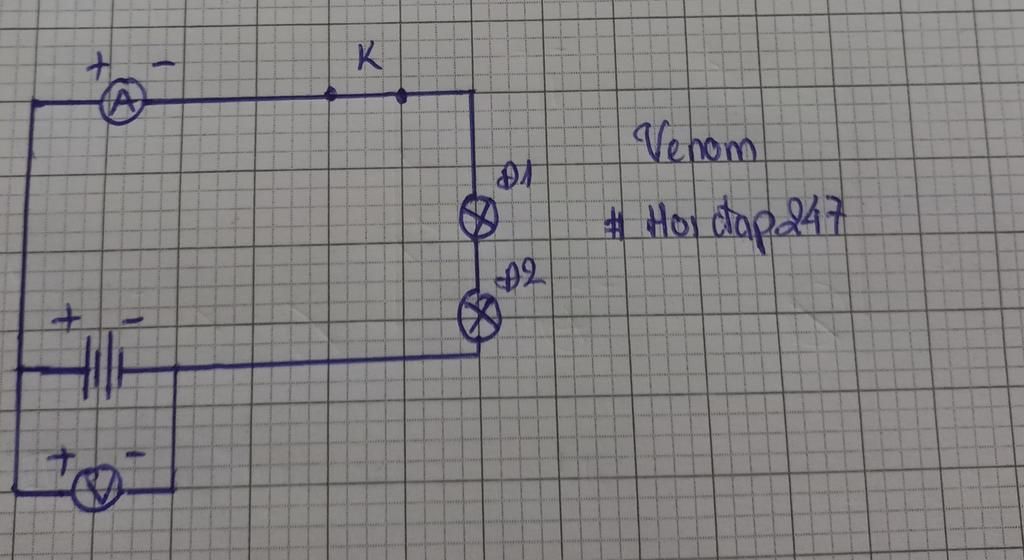 + - K
A
Venom
Đ1
# Hoidap247
Đ2
+ -
+ -
V